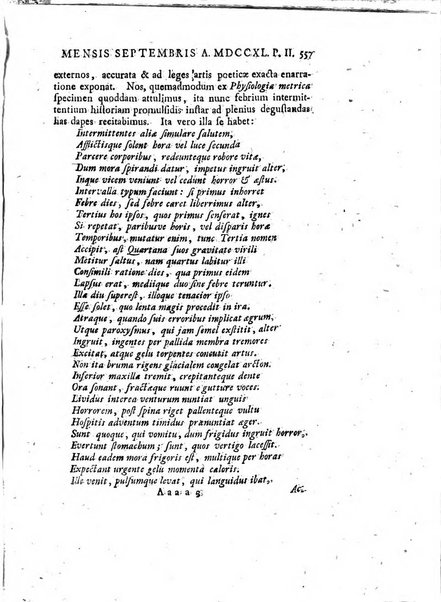 MENSIS SEPTEMBRIS A. MDCCXL. P. II. 557
externos, accurata & ad leges artis poeticæ exacta enarra-
tione exponat. Nos, quemadmodum ex Physiologia metrica
specimen quoddam attulimus, ita nunc febrium intermit-
tentium historiam propulsidis instar ad plenius degustandas
has dapes recitabimus. Ita vero illa se habet:
Intermittentes aliæ simulare salutem,
Afflictisque solent hora vel luce secunda
Parcere corporibus, redeunteque robore vita,
Dum mora spirandi datur, impetus ingruit alter,
Inque vicem veniunt vel cedunt horror & æstus.
Intervalla typum faciunt: si primus inhorret
Febre dies, sed stant caret liberrimus alter,
Tertius hos ipsos, quot primus senserat, ignes
Si repetat, paribusve horis, vel disparis hora
Temporibus, mutatur enim, tunc Tertia nomen
Accipit, ast Quartana suos gravitate virili
Metitur saltus, nam quartus labitur illi
Consimili ratione dies, qua primus eidem
Lapsus erat, mediique duo sine febre teruntur.
Illa diu superest, illoque tenacior ipso
Esse solet, quo lenta magis procedit in ira.
Atraque, quando suis erroribus implicat ægrum,
Utque paroxysmus, qui jam semel exstitit, alter
Ingruit, ingentes per pallida membra tremores
Excitat, atque gelu torpentes concutit artus.
Non ita bruma rigens glacialem congelat arcton.
Inferior maxilla tremit, crepitanteque dente
Ora sonant, fractæque ruunt e gutture voces.
Lividus interea venturum nuntiat unguis
Horrorem, post spina riget pallenteque vultu
Hospitis adventum timidus prænuntiat æger.
Sunt quoque, qui vomitu, dum frigidus ingruit horror,
Evertunt stomachum; sunt, quos vertigo lacessit.
Haud eadem mora frigoris est, multique per horam
Expectant urgente gelu momenta caloris.
Ille venit, pulsumque levat, qui languidus ibat,
A a a a 3